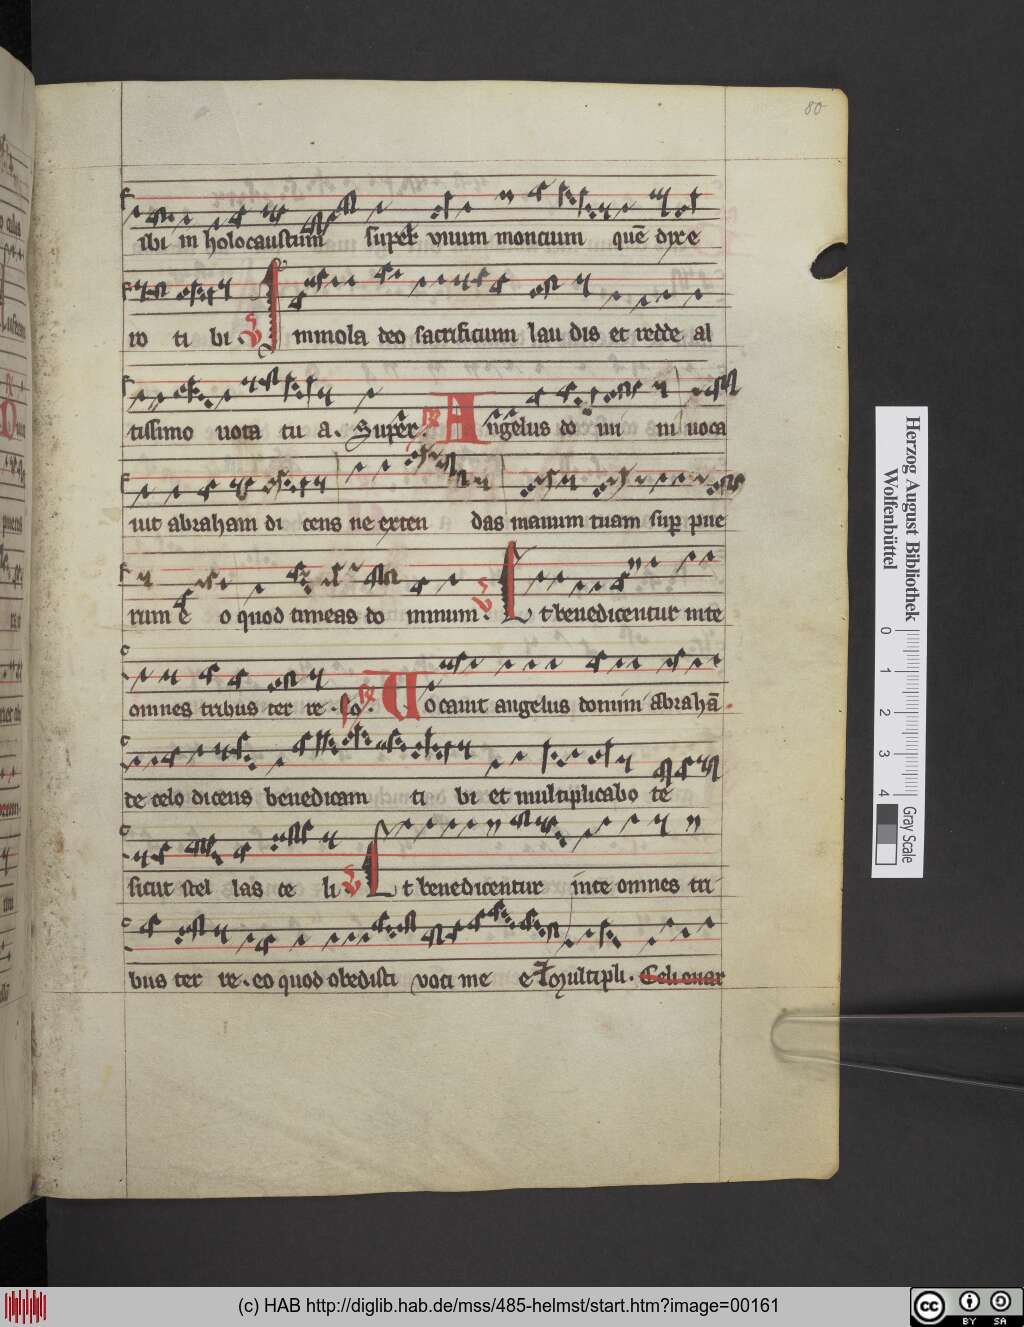 80
ibi in holocaustum super̄ vnum moncium quē dixe
ro ti bi . V Immola deo sacrificium lau dis et redde al
tissimo uota tu a . Super̄ . R Angelus do mi ni uoca
uit abraham di cens ne exten das manum tuam sup pue
rum e o quod timeas do minum . V Et benedicentur inte
omnes tribus ter re . Eo . R Uocauit angelus domini abrahā
de celo dicens benedicam ti bi et multiplicabo te
sicut stel las ce li V Et benedicentur inte omnes tri
bus ter re . eo quod obedisti voci me e Et multipli . Celi enar
Herzog August Bibliothek
Wolfenbüttel
0 1 2 3 4
Gray Scale
(c) HAB http://diglib.hab.de/mss/485-helmst/start.htm?image=00161
cc BY SA